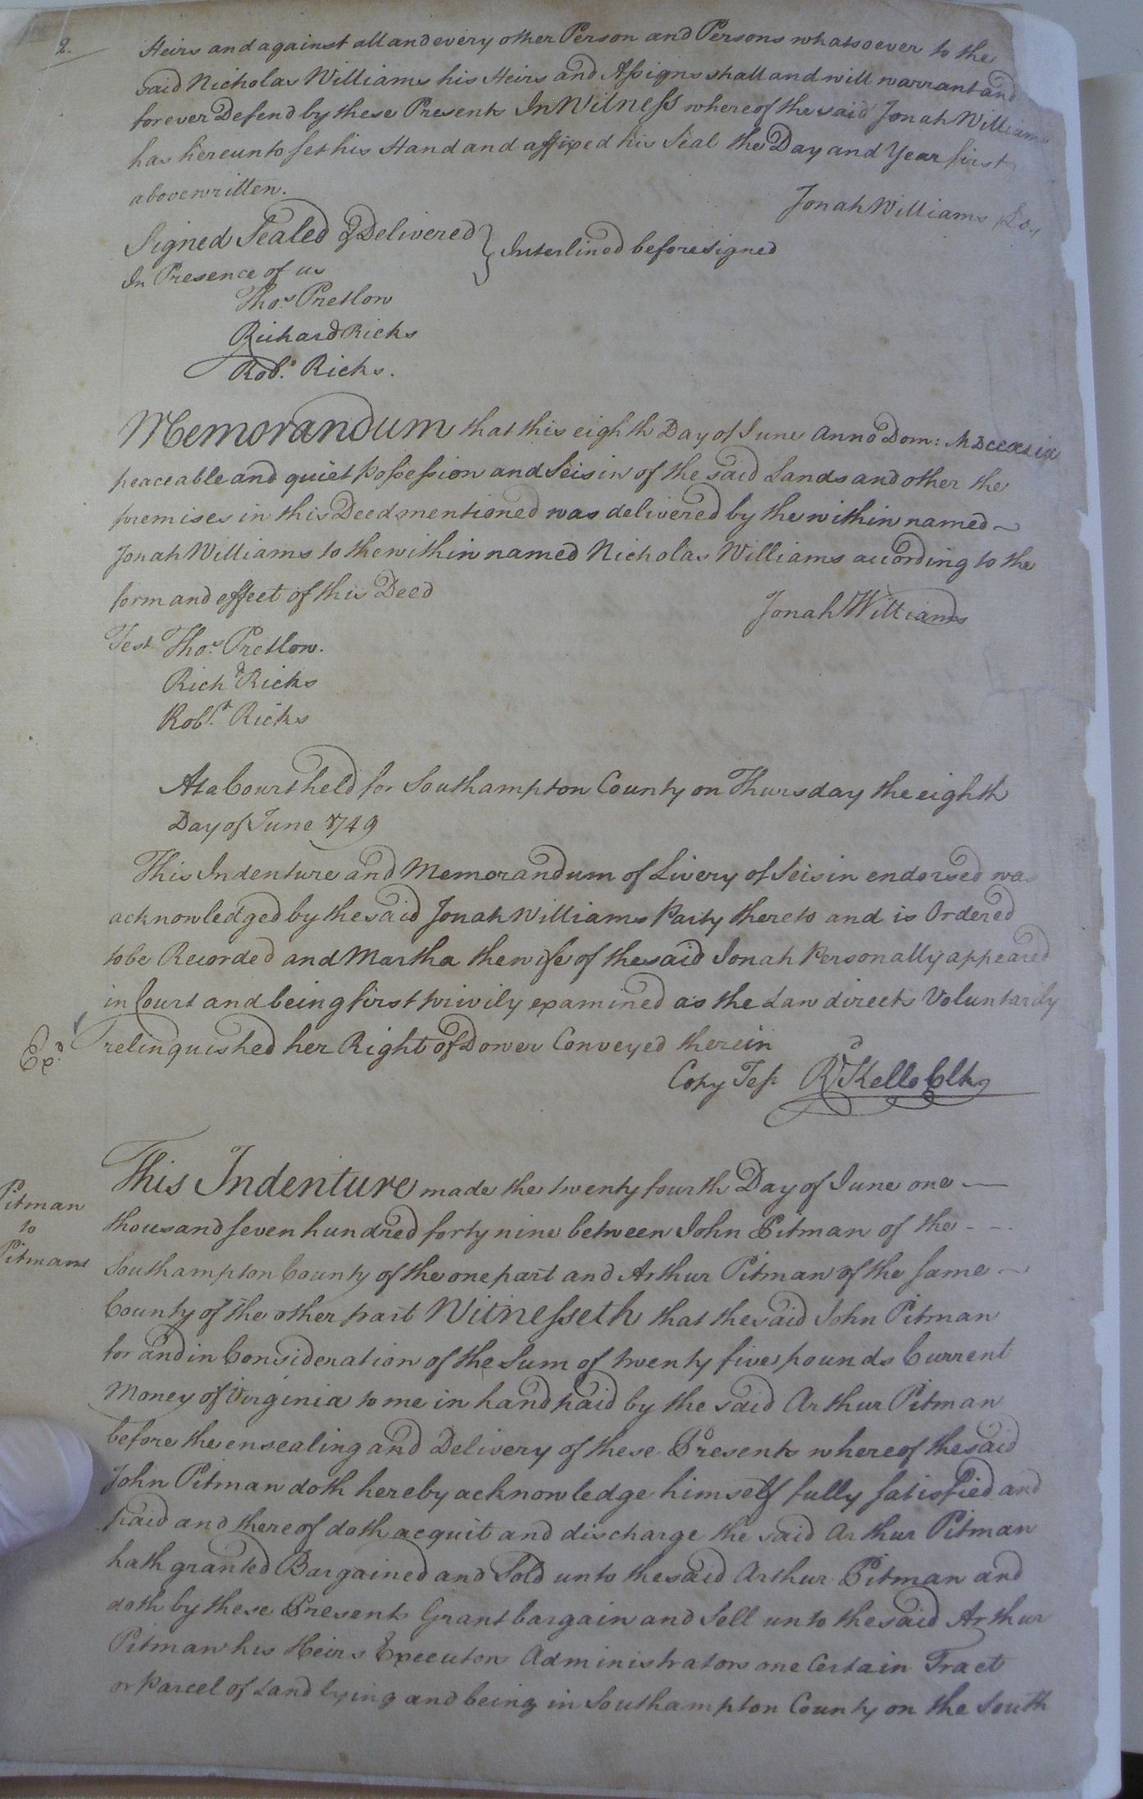 2.
Heirs and against all and every other Person and Persons whatsoever to the
said Nicholas Williams his Heirs and Assigns shall and will warrant and
forever Defend by these Presents In Witness whereof the said Jonah Williams
has hereunto set his Hand and affixed his Seal the Day and Year first
above written.
Jonah Williams
Signed Sealed & Delivered } Interlined before signed
In Presence of us
Thos. Pretlow
Richard Ricks
Robt. Ricks.
Memorandum that this eighth Day of June Anno Dom:
peaceable and quiet Possession and Seisin of the said Lands and other the
premises in this Deed mentioned was delivered by the within named
Jonah Williams to the within named Nicholas Williams according to the
form and effect of this Deed
Jonah Williams
Test Thos. Pretlow.
Richd. Ricks
Robt. Ricks
At a Court held for Southampton County on Thursday the eighth
Day of June 1749
This Indenture and Memorandum of Livery of Seisin endorsed was
acknowledged by the said Jonah Williams Party thereto and is Ordered
to be Recorded and Martha the wife of the said Jonah Personally appeared
in Court and being first privily examined as the Law directs Voluntarily
Exd. relinquished her Right of Dower Conveyed therein
Copy Test Rd Kello Clk
Pitman
to
Pitman
This Indenture made the twenty fourth Day of June one
thousand seven hundred forty nine between John Pitman of the
Southampton County of the one part and Arthur Pitman of the same
County of the other part Witnesseth that the said John Pitman
for and in Consideration of the Sum of twenty five pounds Current
Money of Virginia to me in hand paid by the said Arthur Pitman
before the ensealing and Delivery of these Presents whereof the said
John Pitman doth hereby acknowledge himself fully satisfied and
paid and thereof doth acquit and discharge the said Arthur Pitman
hath granted Bargained and Sold unto the said Arthur Pitman and
doth by these Presents Grant bargain and Sell unto the said Arthur
Pitman his Heirs Executors Administrators one Certain Tract
or Parcel of Land lying and being in Southampton County on the South